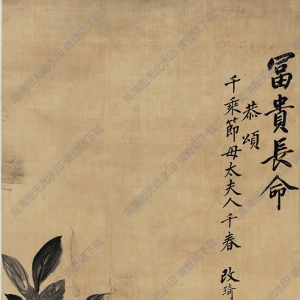 富貴長命
恭頌
千乘節母太夫人千春
改琦